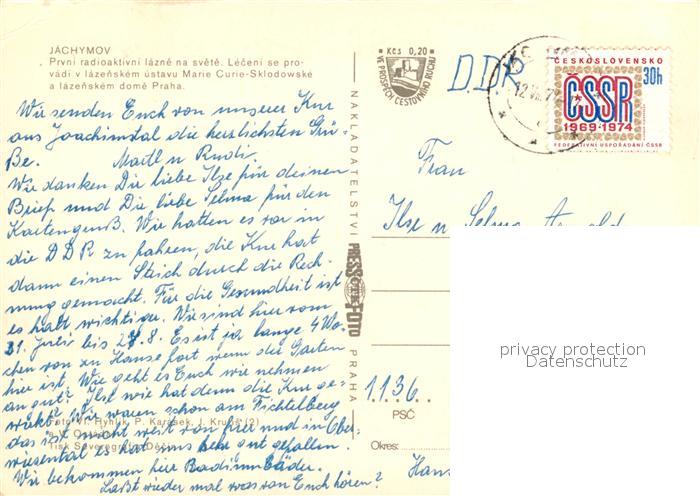 JÁCHYMOV
První radioaktivní lázně na světě. Léčení se pro-
vádí v lázeňském ústavu Marie Curie-Sklodowské
a lázeňském domě Praha.
Wir senden Euch von unserer Kur
aus Joachimstal die herzlichsten Grü-
ße. Martl u Rudi.
Wir danken Dir liebe Ilse für deinen
Brief und Dir liebe Selma für den
Kartengruß. Wir hatten es vor in
die DDR zu fahren, die Kur hat
dann einen Strich durch die Rech-
nung gemacht. Für die Gesundheit ist
es halt wichtiger. Wir sind hier vom
31. Juli bis 28.8. Es ist ja lange 4 Wo-
chen von zu Hause fort wenn der Garten
hier ist. Wie geht es Euch wir nehmen
an gut? Ilse wie hat denn die Kur ge-
wirkt? Wir waren schon am Fichtelberg
das ist nicht weit von hier und in Ober-
wiesental es hat uns sehr gut gefallen.
Wir bekommen hier Radiumbäder.
Laßt wieder mal was von Euch hören?
Foto Vl. Hyhlík, P. Karásek, J. Krupš (2)
Tisk Severografia Děčín
NAKLADATELSTVÍ
PRESSFOTO
PRAHA
Kčs 0,20
VE PROSPĚCH CESTOVNÍHO RUCHU
DDR
ČESKOSLOVENSKO
30h
ČSSR
1969-1974
FEDERATIVNÍ USPOŘÁDÁNÍ ČSSR
Frau
Ilse u. Selma
privacy protection
Datenschutz
1136
PSČ
Okres: